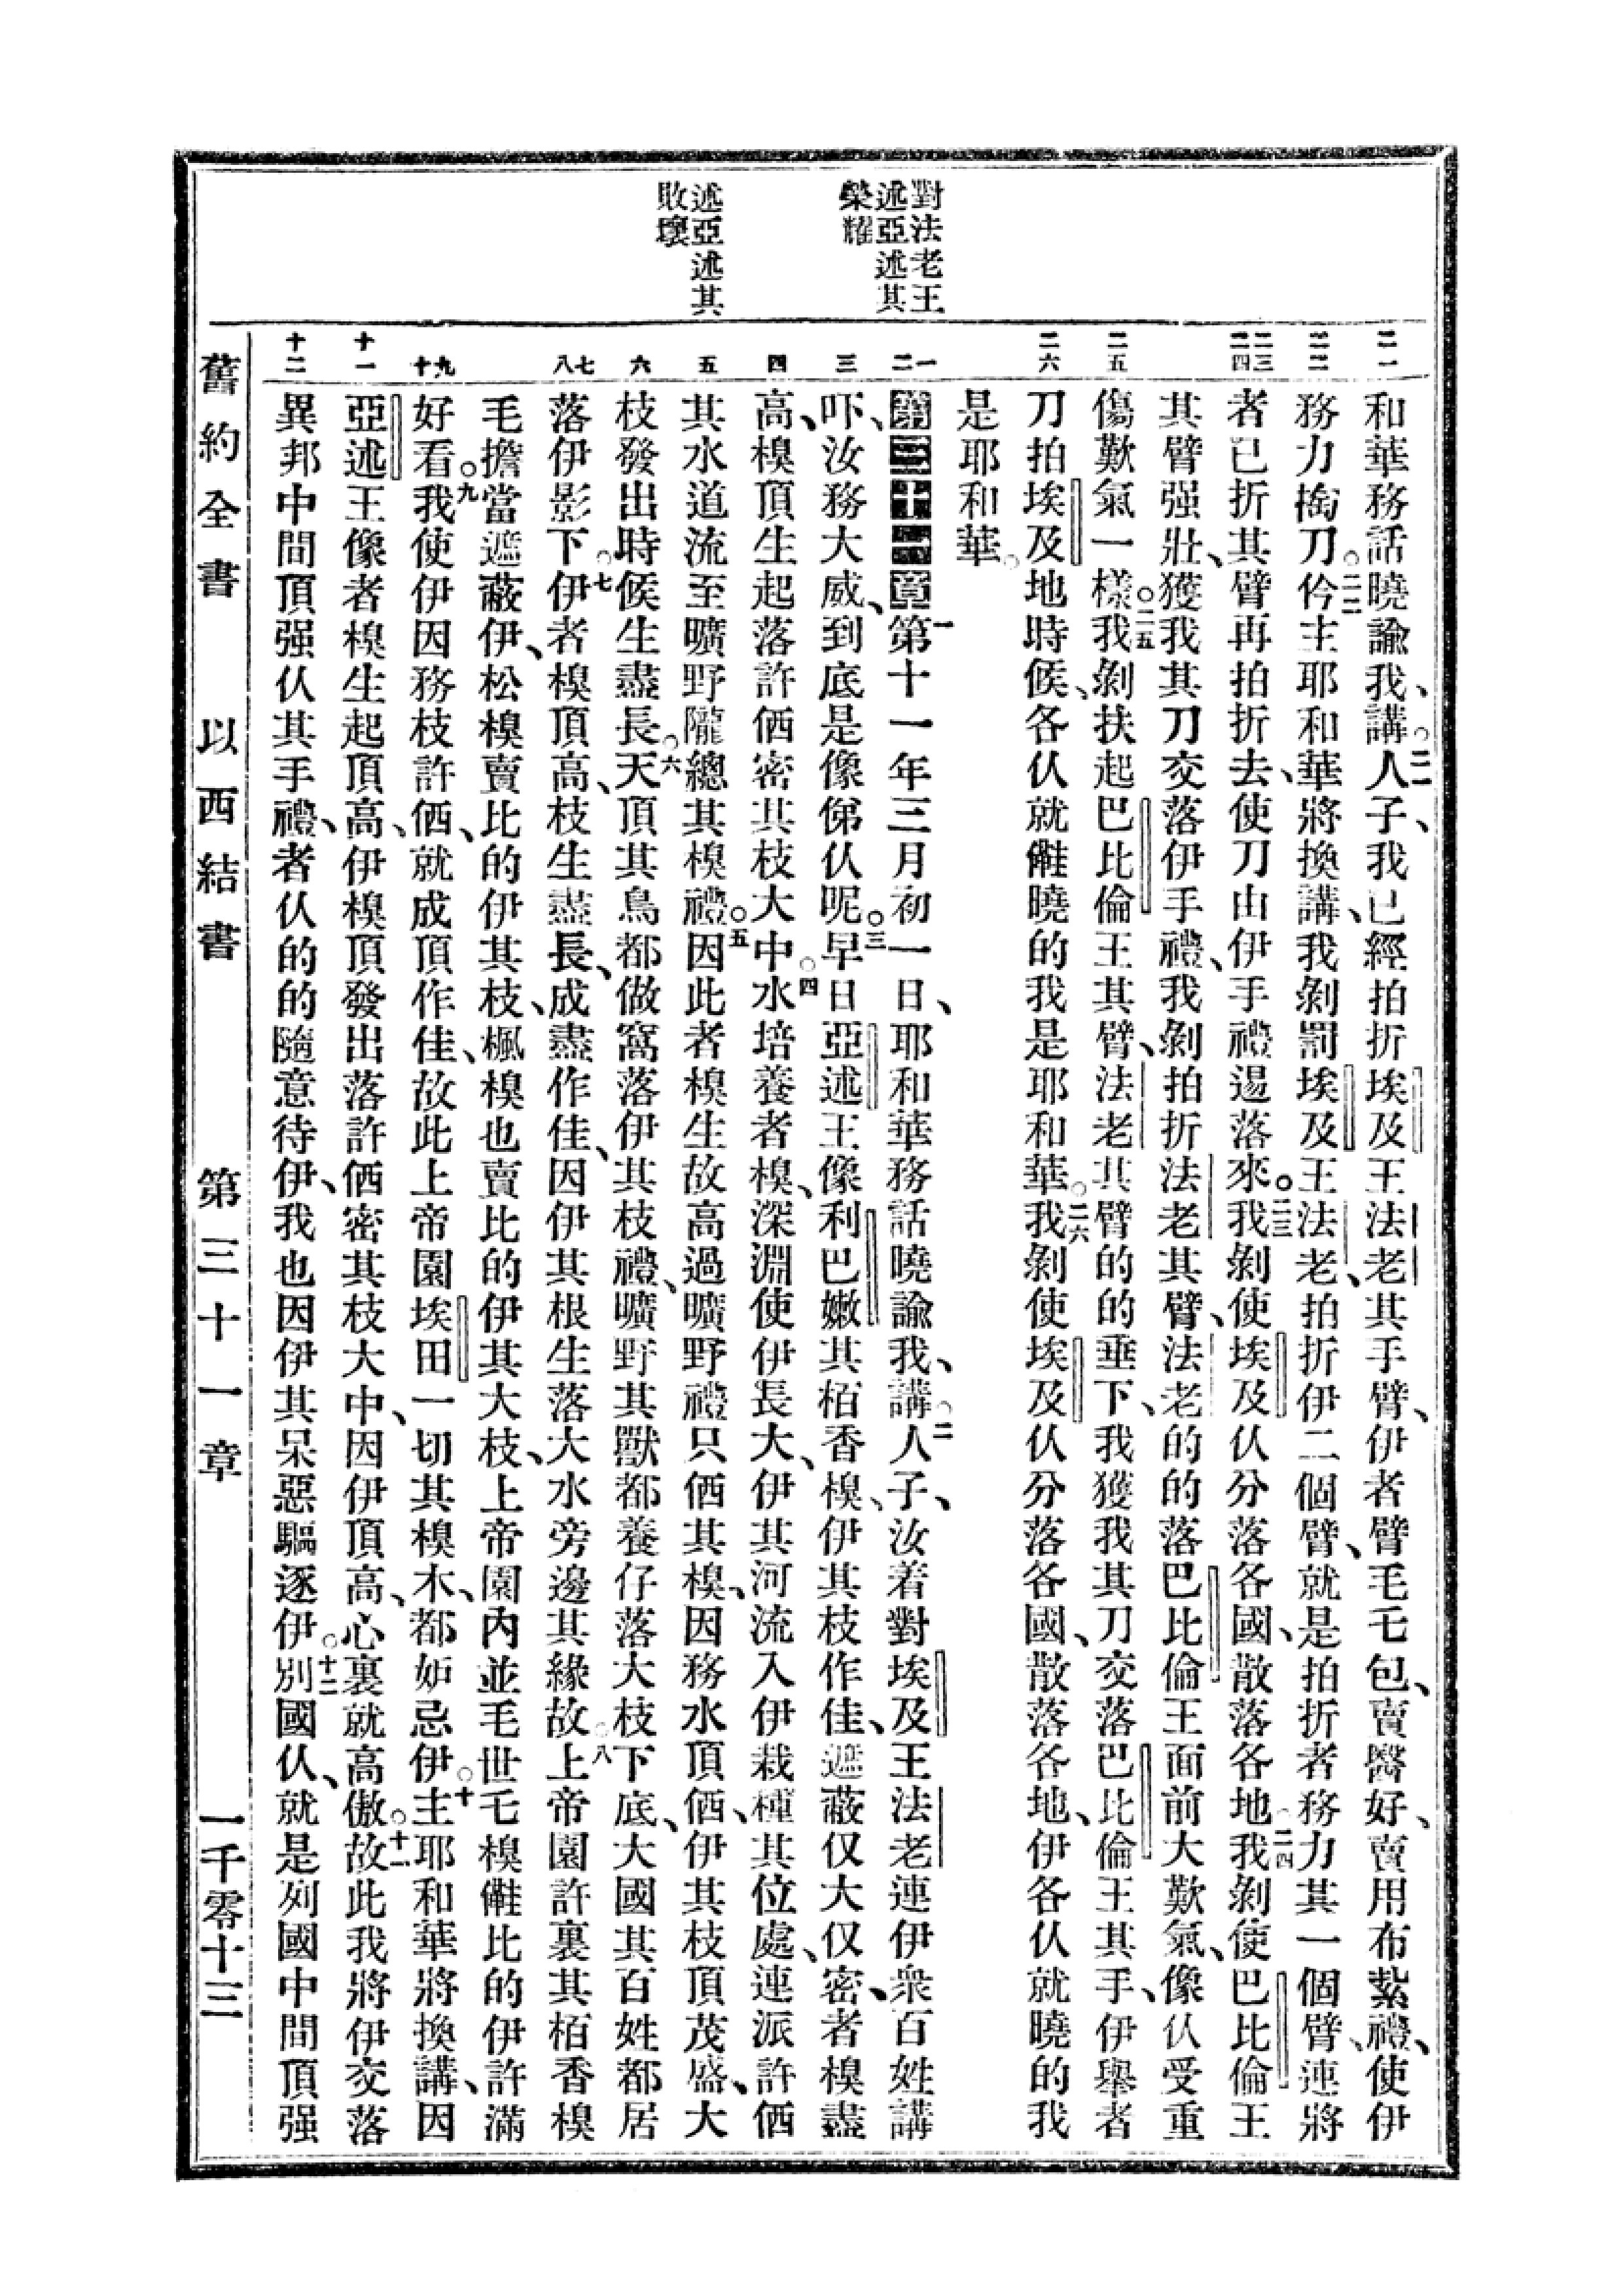 對法老王
述亞述其
榮耀
述亞述其
敗壞
二一 二二 二三 二四 二五 二六 一 二 三 四 五 六 七 八 九 十 十一 十二
和華務話曉諭我、講。二一人子、我已經拍折埃及王法老其手臂、伊者臂毛乇包、賣醫好、賣用布紮禮、使伊
務力掏刀。二二仱主耶和華將換講、我剝罰埃及王法老、拍折伊二個臂、就是拍折者務力其一個臂、連將
者已折其臂再拍折去、使刀由伊手禮逿落來。二三我剝使埃及仈分落各國、散落各地。二四我剝使巴比倫王
其臂强壯、獲我其刀交落伊手禮、我剝拍折法老其臂、法老的的落巴比倫王面前大歎氣、像仈受重
傷歎氣一樣。二五我剝扶起巴比倫王其臂、法老其臂的的垂下、我獲我其刀交落巴比倫王其手、伊舉者
刀拍埃及地時候、各仈就曉的我是耶和華。二六我剝使埃及仈分落各國、散落各地、伊各仈就曉的我
是耶和華。
第三十一章 一第十一年三月初一日、耶和華務話曉諭我、講。二人子、汝着對埃及王法老連伊衆百姓講
吓、汝務大威、到底是像俤仈呢。三早日亞述王像利巴嫩其栢香、伊其枝作佳、遮蔽仅大仅密、者盡
高、頂生起落許佰密其枝大中。四水培養者、深淵使伊長大、伊其河流入伊栽種其位處、連派許佰
其水道流至曠野隴總其禮。五因此者生故高過曠野禮只佰其、因務水頂佰、伊其枝頂茂盛、大
枝發出時候生盡長。六天頂其鳥都做窩落伊其枝禮、曠野其獸都養仔落大枝下底、大國其百姓都居
落伊影下。七伊者頂高、枝生盡長、成盡作佳、因伊其根生落大水旁邊其緣故。八上帝園許裏其栢香
毛擔當遮蔽伊、松賣比的伊其枝、楓也賣比的伊其大枝、上帝園內並毛世乇比的伊許滿
好看。九我使伊因務枝許佰、就成頂作佳、故此上帝園埃田一切其木、都妒忌伊。十主耶和華將換講、因
亞述王像者生起頂高、伊頂發出落許佰密其枝大中、因伊頂高、心裏就高傲。十一故此我將伊交落
異邦中間頂强仈其手禮、者仈的的隨意待伊、我也因伊其呆惡驅逐伊。十二別國仈、就是列國中間頂强
舊約全書 以西結書 第三十一章 一千零十三